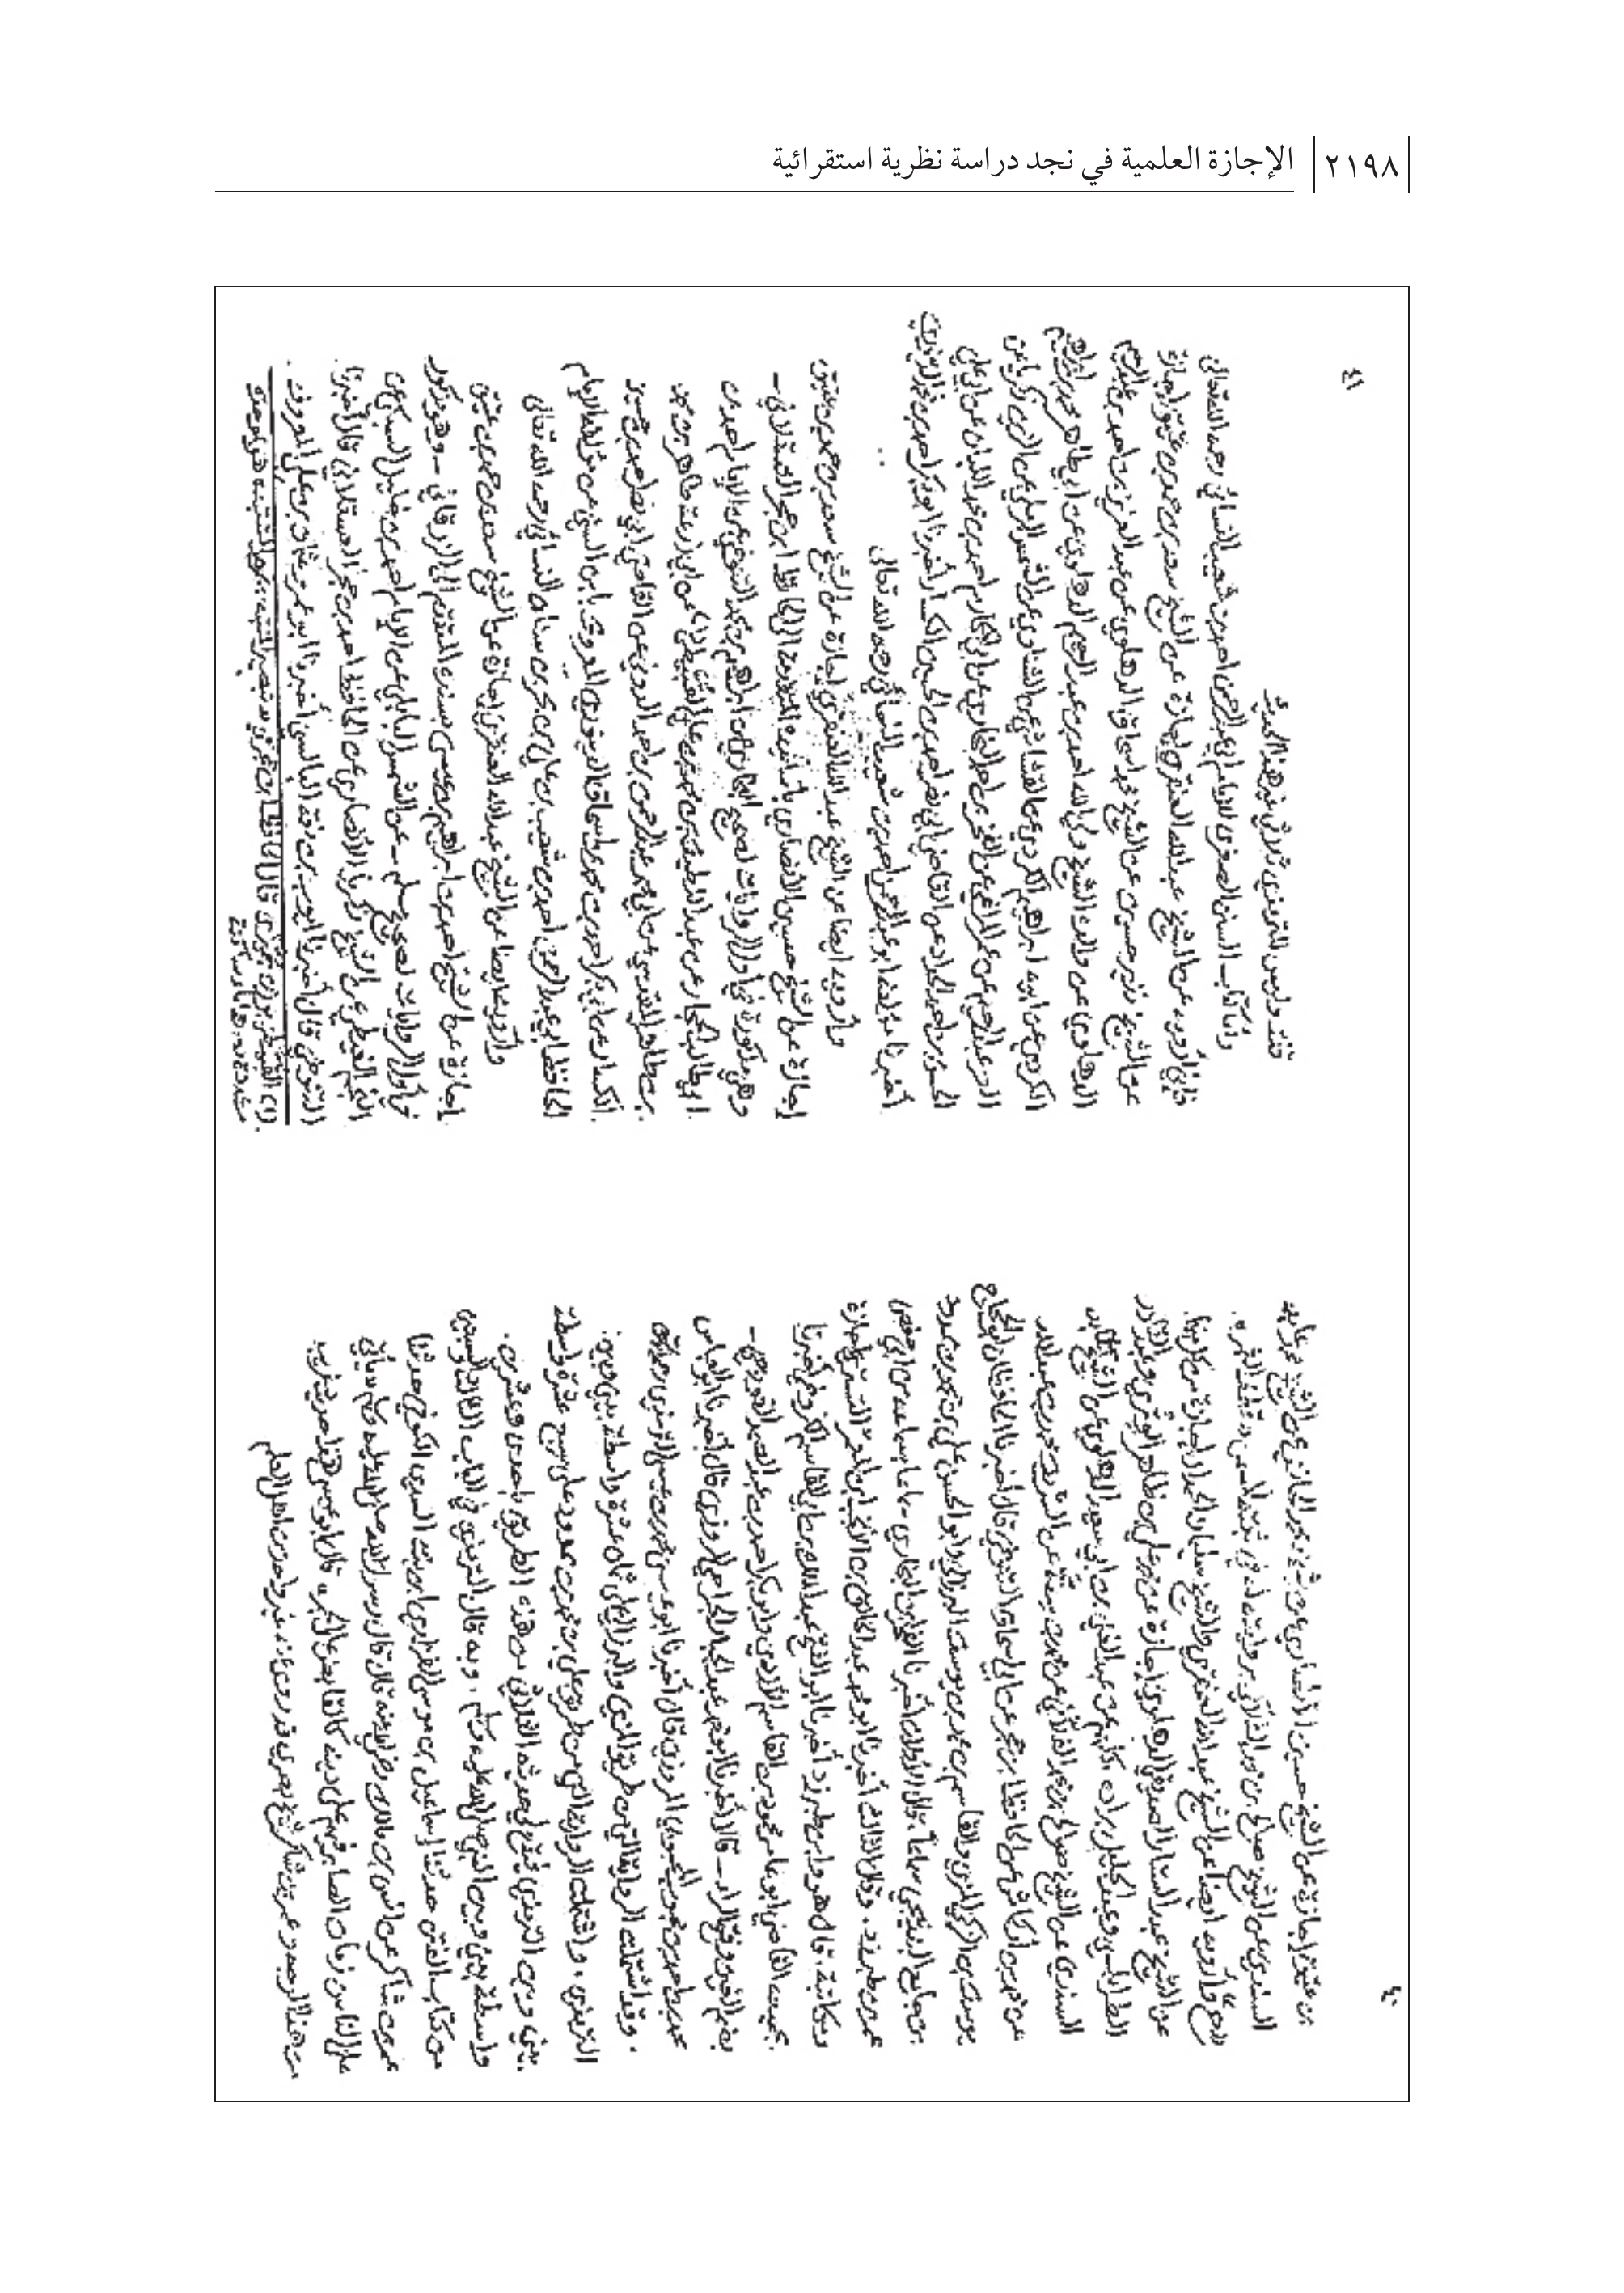 ٢١٩٨ الإجازة العلمية في نجد دراسة نظرية استقرائية
٤٠
بن عتيق إجازة عن الشيخ حسين الأنصاري عن شيخه محمد الحازمي عن الشيخ محمد عابد
السندي عن الشيخ صالح بن محمد الفلاني بروايته له في ثبته المسمى قطف الثمر
(ح) وأرويه أيضا عن الشيخ عبدالله العنقري والشيخ سليمان الحمدان إجازة من كل منهما
عن الشيخ عبدالستار الصديقي الدهلوي إجازة عن محمد علي بن ظاهر الوتري وعبدالقادر
الطرابلسي وعبدالجليل براده كلهم عن عبدالغني بن أبي سعيد الدهلوي عن الشيخ عابد
السندي عن الشيخ صالح بن محمد الفلاني عن محمد بن سنة عن الشريف محمد بن عبدالله
عن محمد بن أركماش عن الحافظ ابن حجر عن أبي إسحاق التنوخي قال أخبرنا الحافظان أبو الحجاج
يوسف بن الزكي المزي والقاسم بن محمد بن يوسف البرزالي وأبو الحسن علي بن محمد بن ممدود
بن جامع البندنيجي سماعاً، قال الأولان أخبرنا الفخر ابن البخاري - سماعا بسماعه من أبي حفص
عمر بن طبرزد، وقال الثالث أخبرنا أبو محمد عبد الخالق بن الأنجب ابن المعمر النشتبري إجازة
ومكاتبة، قال هو وابن طبرزد أخبرنا أبو الفتح عبدالملك بن أبي القاسم الكروخي أخبرنا
بجميعه القاضي أبو عامر محمود بن القاسم الأزدي وأبو بكر أحمد بن عبدالصمد الغورجي -
بضم الغين وفتح الراء - قالا أخبرنا أبو محمد عبدالجبار الجراحي المروزي قال أخبرنا أبو العباس
محمد بن أحمد بن محبوب المحبوبي المروزي قال أخبرنا أبو عيسى محمد بن عيسى الترمذي رحمه الله
. وقد اشتملت الرواية التي من طريق المزي والبرزالي ثمان عشرة واسطة بيني وبين
الترمذي، واشتملت الرواية التي من طريق علي بن محمد بن ممدود على سبع عشرة واسطة
بيني وبين الترمذي فيقع لي حديثه الثلاثي من هذه الطريق بإحدى وعشرين.
واسطة بيني وبين النبي صلى الله عليه وسلم، وبه قال الترمذي في الباب الثالث والسبعين
من كتاب الفتن حدثنا إسماعيل بن موسى الفزاري ابن بنت السدي الكوفي حدثنا
عمر بن شاكر عن أنس بن مالك رضي الله عنه قال قال رسول الله صلى الله عليه وسلم يأتي
على الناس زمان الصابر فيهم على دينه كالقابض على الجمر، قال أبو عيسى هذا حديث غريب
من هذا الوجه وعمر بن شاكر شيخ بصري قد روى عنه غير واحد من أهل العلم
٤١
وليس للترمذي ثلاثي غير هذا الحديث
وأما كتاب السنن الصغرى للإمام أبي عبدالرحمن أحمد بن شعيب النسائي رحمه الله تعالى
فإني أرويه عن الشيخ عبدالله العنقري إجازة عن الشيخ سعد بن حمد بن عتيق إجازة
عن الشيخ نذير حسين عن الشيخ محمد إسحاق الدهلوي عن عبد العزيز بن أحمد بن عبدالرحيم
الدهلوي عن والده الشيخ ولي الله أحمد بن عبدالرحيم الدهلوي عن أبي طاهر محمد بن إبراهيم
الكردي عن أبيه إبراهيم الكردي عن القشاشي عن الشناوي عن الشمس الرملي عن الزين زكريا عن
العز عبدالرحيم عن عمر المراغي عن الفخر بن البخاري عن أبي المكارم أحمد بن محمد اللبان عن أبي علي
الحسن بن أحمد الحداد عن القاضي أبي نصر أحمد بن الحسين الكسار أخبرنا أبو بكر أحمد بن محمد الدينوري
أخبرنا مؤلفه أبو عبدالرحمن أحمد بن شعيب النسائي رحمه الله تعالى
وأرويه أيضا عن الشيخ عبدالله العنقري إجازة عن الشيخ سعد بن حمد بن عتيق
إجازة عن الشيخ حسين الأنصاري إلى الحافظ ابن حجر العسقلاني -
وهي مذكورة في أول الروايات لصحيح البخاري عن إبراهيم بن محمد التنوخي عن الإمام أحمد بن
أبي طالب الحجار عن عبد اللطيف بن محمد بن علي القبيطي (١) عن أبي زرعة طاهر بن محمد
بن طاهر المقدسي عن أبي محمد عبدالرحمن بن أحمد الدوني عن القاضي أبي نصر أحمد بن حسين
الكسار عن أبي بكر أحمد بن محمد بن إسحاق الدينوري المعروف بابن السني عن مؤلفه الإمام
الحافظ أبي عبدالرحمن أحمد بن شعيب بن علي بن بحر بن سنان النسائي رحمه الله تعالى
وأرويه أيضا عن الشيخ عبدالله العنقري إجازة عن الشيخ سعد بن حمد بن عتيق
إجازة عن الشيخ أحمد بن إبراهيم بن عيسى بسنده المتقدم إلى الزرقاني - وهو مذكور
في أول الروايات لصحيح مسلم - عن الشمس البابلي عن الإمام أحمد بن خليل السبكي عن
النجم الغيطي عن الشيخ زكريا الأنصاري عن الحافظ أحمد بن حجر العسقلاني قال أخبرنا
التنوخي قال أخبرنا أيوب بن نعمة النابلسي أخبرنا أبو عمر عثمان بن علي المعروف
(١) القبيطي قال الحافظ ابن حجر في تبصير المنتبه